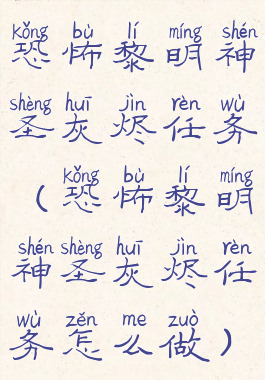 kǒng bù lí míng shén
恐怖黎明神
shèng huī jìn rèn wù
圣灰烬任务
kǒng bù lí míng
(恐怖黎明
shén shèng huī jìn rèn
神圣灰烬任
wù zěn me zuò
务怎么做)